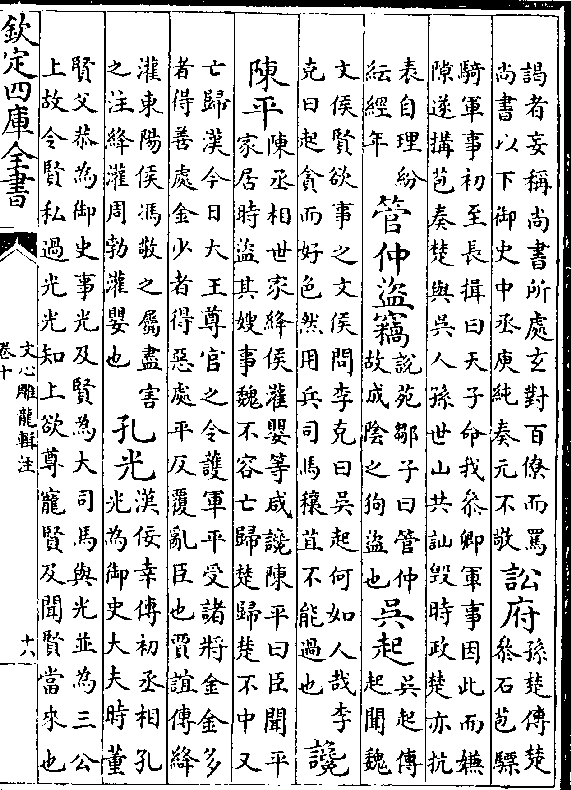 謁者妄稱尚書所處玄對百僚而罵
尚書以下御史中丞庾純奏元不敬
訟府
孫楚傳楚
叅石苞驃
騎軍事初至長揖曰天子命我叅卿軍事因此而嫌
隙遂搆苞奏楚與吳人孫世山共訕毀時政楚亦抗
表自理紛
紜經年
管仲盜竊
說苑鄒子曰管仲
故成陰之狗盜也
吳起
吳起傳
起聞魏
文侯賢欲事之文侯問李克曰吳起何如人哉李
克曰起貪而好色然用兵司馬穰苴不能過也
讒
陳平
陳丞相世家絳侯灌嬰等咸讒陳平曰臣聞平
家居時盜其嫂事魏不容亡歸楚歸楚不中又
亡歸漢今日大王尊官之令護軍平受諸將金金多
者得善處金少者得惡處平反覆亂臣也賈誼傳絳
灌東陽侯馮敬之屬盡害
之注絳灌周勃灌嬰也
孔光
漢佞幸傳初丞相孔
光為御史大夫時董
賢父恭為御史事光及賢為大司馬與光並為三公
上故令賢私過光光知上欲尊寵賢及聞賢當來也
欽定四庫全書
文心雕龍輯注
卷十
十六